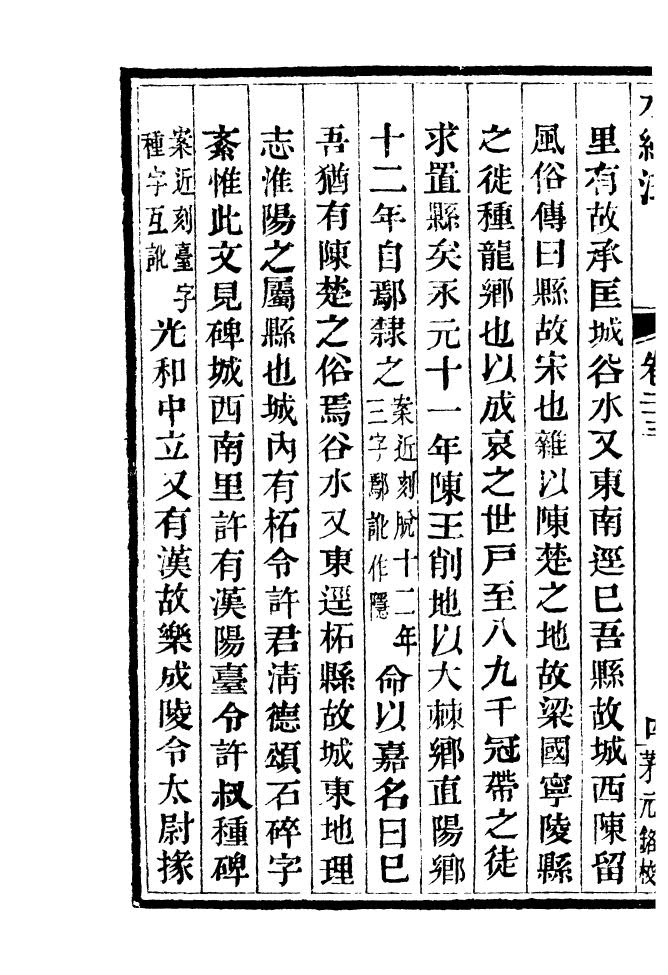 水經注 卷二十三 四 茅元銘校
里有故承匡城谷水又東南逕巳吾縣故城西陳留
風俗傳曰縣故宋也雜以陳楚之地故梁國寧陵縣
之徙種龍鄉也以成哀之世戸至八九千冠帶之徒
求置縣矣永元十一年陳王削地以大棘鄉直陽鄉
十二年自鄢隸之案近刻脫十二年三字鄢訛作隱命以嘉名曰巳
吾猶有陳楚之俗焉谷水又東逕柘縣故城東地理
志淮陽之屬縣也城內有柘令許君淸德頌石碎字
紊惟此文見碑城西南里許有漢陽臺令許叔種碑
案近刻臺字種字互訛光和中立又有漢故樂成陵令太尉掾